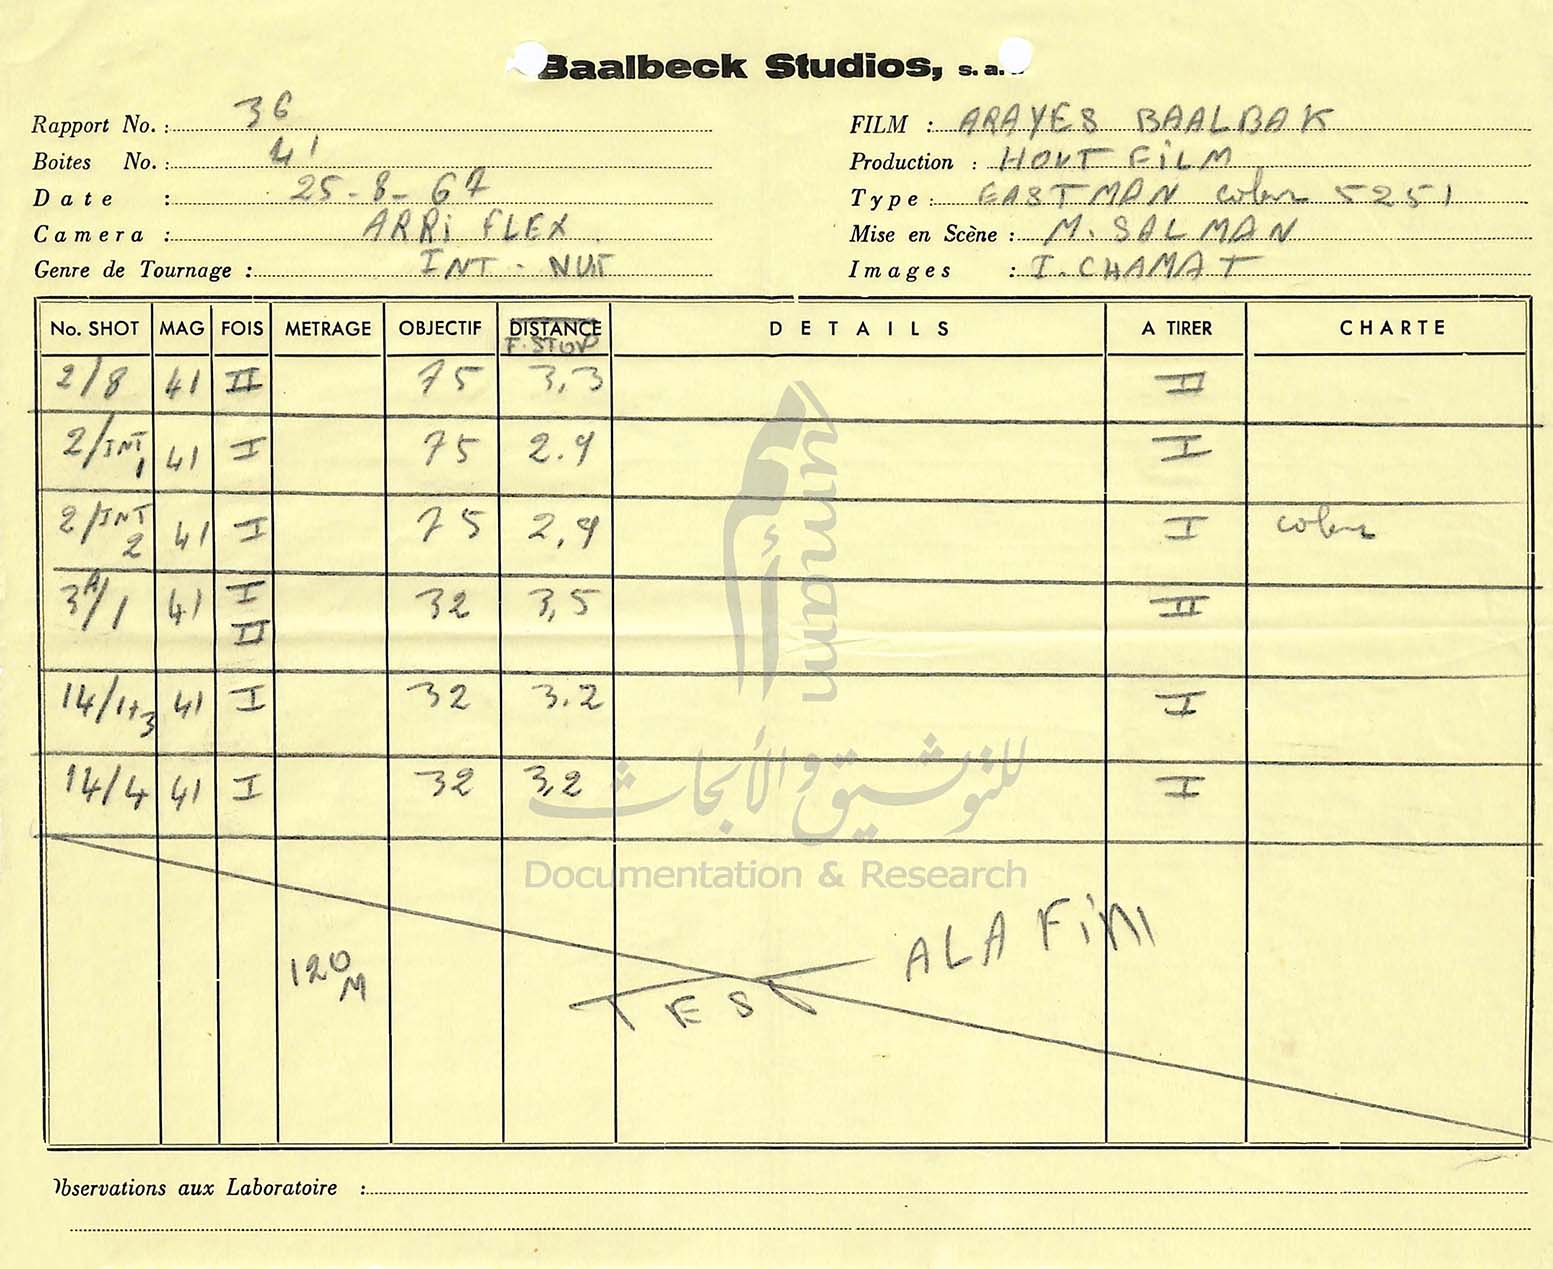 Baalbeck Studios, s. a.
Rapport No. : 36
Boites No. : 41
Date : 25-8-67
Camera : ARRi FLEX
Genre de Tournage : INT - NUiT
FILM : ARAYES BAALBAK
Production : HOUT FiLM
Type : EASTMAN 5251
Mise en Scène : M. SALMAN
Images : I. CHAMAT
No. SHOT MAG FOIS METRAGE OBJECTIF DISTANCE DETAILS A TIRER CHARTE
F. STOP
2/8 41 II 75 3,3 II
2/INT 1 41 I 75 2.9 I
2/INT 2 41 I 75 2,9 I
3A/1 41 I II 32 3,5 II
14/1+3 41 I 32 3.2 I
14/4 41 I 32 3,2 I
120 M
TEST ALA FiNi
Observations aux Laboratoire :
أمم umam
للتوثيق والأبحاث
Documentation & Research